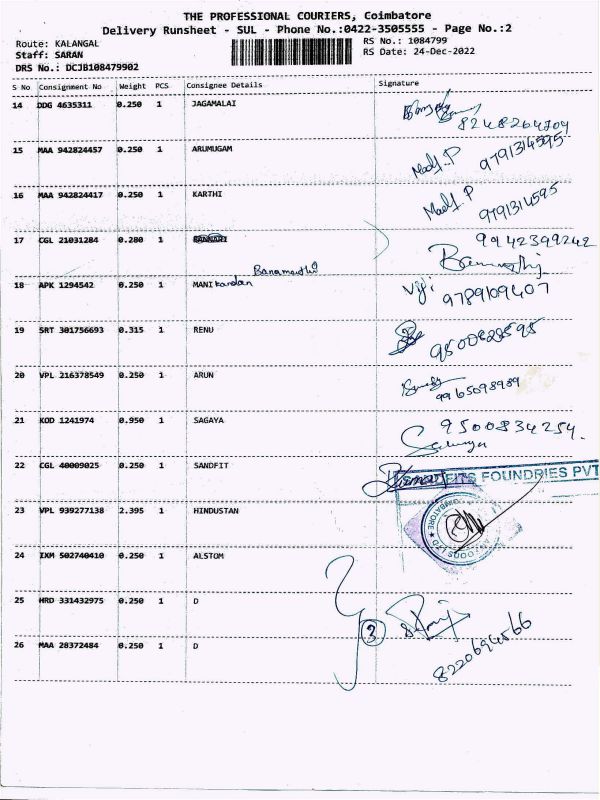 THE PROFESSIONAL COURIERS, Coimbatore
Delivery Runsheet - SUL - Phone No.:0422-3505555 - Page No.:2
Route: KALANGAL
RS No.: 1084799
Staff: SARAN
RS Date: 24-Dec-2022
DRS No.: DCJB108479902
S No Consignment No Weight PCS Consignee Details Signature
14 DDG 4635311 0.250 1 JAGAMALAI
8248264804
15 MAA 942824457 0.250 1 ARUMUGAM
Madf. P 9791314595
16 MAA 942824417 0.250 1 KARTHI
Madf P 9791314595
17 CGL 21031284 0.280 1 BANNARI
9942399242
18 APK 1294542 0.250 1 MANI kandan
Viji 9789109407
19 SRT 301756693 0.315 1 RENU
9500828595
20 VPL 216378549 0.250 1 ARUN
9965098989
21 KOD 1241974 0.950 1 SAGAYA
9500834254.
22 CGL 40009025 0.250 1 SANDFIT
FITS FOUNDRIES PVT
23 VPL 939277138 2.395 1 HINDUSTAN
COIMBATORE
24 IXM 502740410 0.250 1 ALSTOM
25 HRD 331432975 0.250 1 D
3
26 MAA 28372484 0.250 1 D
8220694566